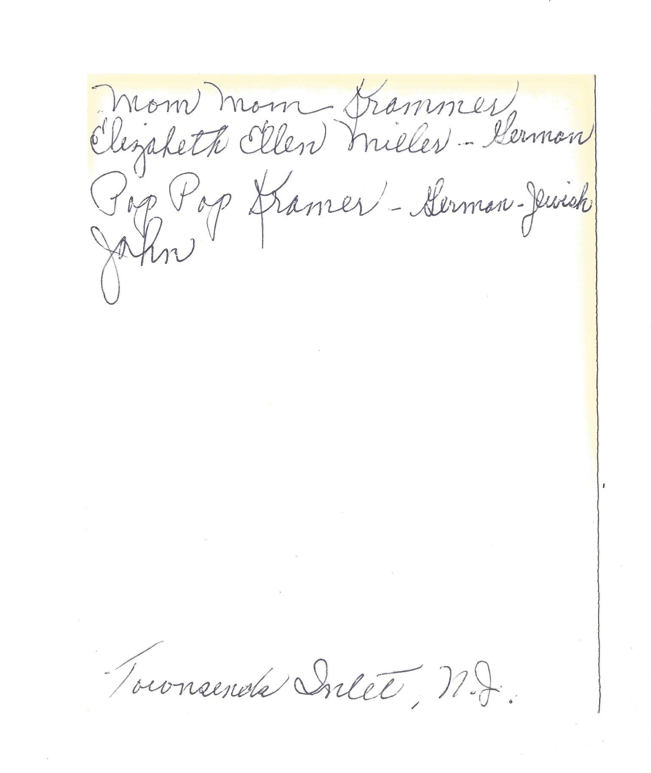 Mom Mom Krammer
Elizabeth Ellen Miller - German
Pop Pop Kramer - German-Jewish
John
Townsends Inlet, N.J.